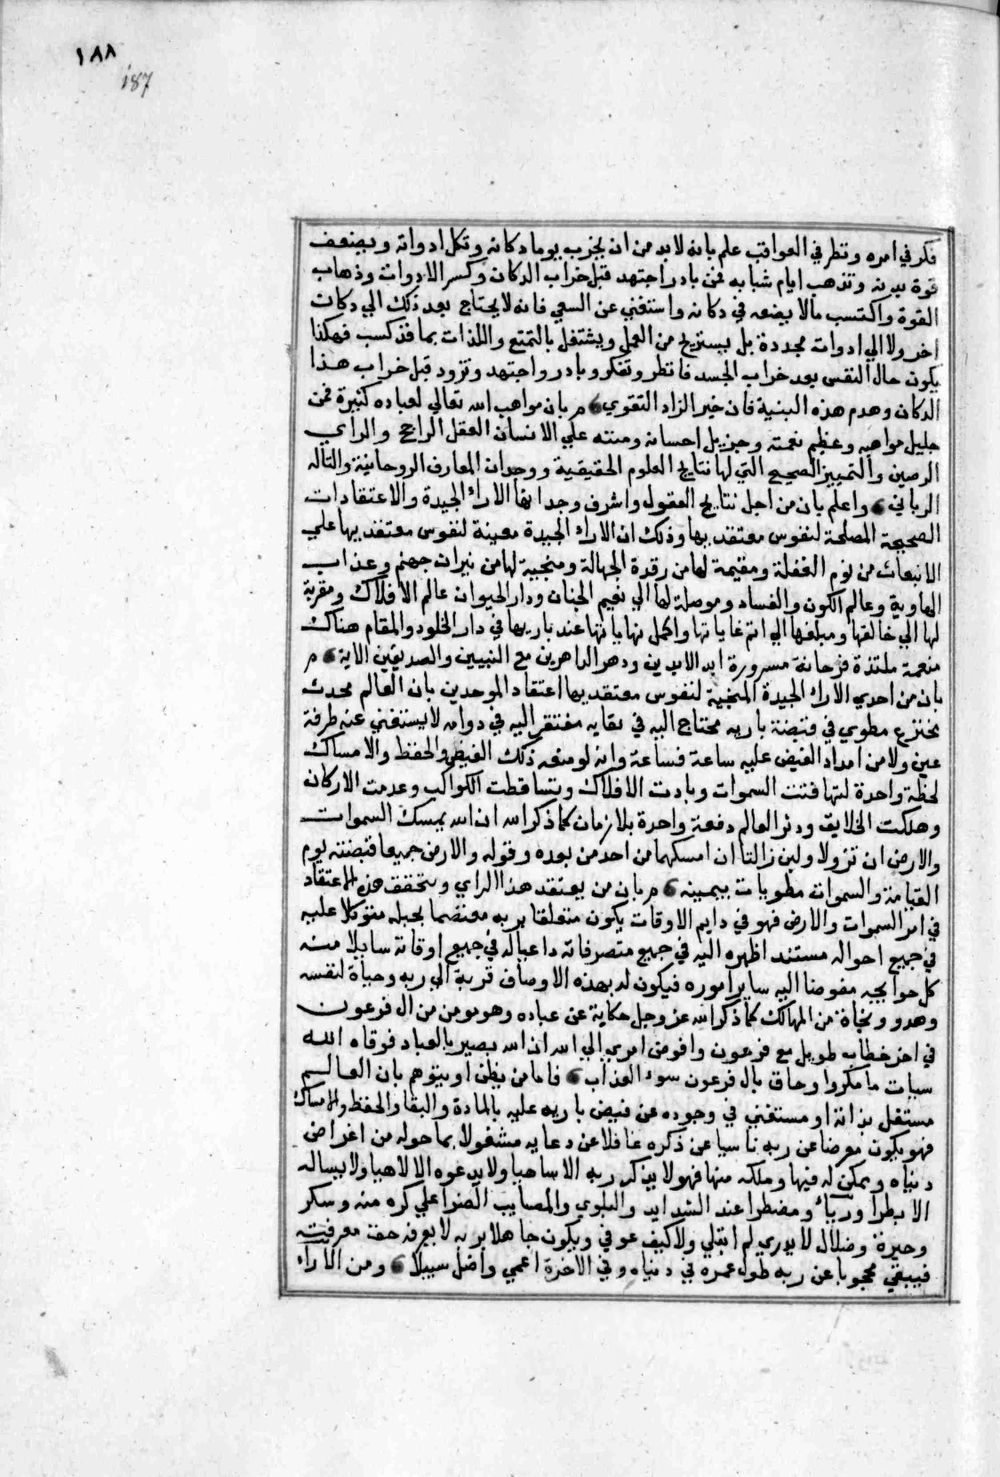 ١٨٨
187
فكر في امره ونظر في العواقب علم بانه لابد من ان يخرب يوما دكانه وتكل ادواته ويضعف
قوة بدنه وتذهب ايام شبابه فمن بادر واجتهد قبل خراب الدكان وكسر الادوات وذهاب
القوة واكتسب مالا بضعه في دكانه واستغني عن السعي فانه لا يحتاج بعد ذلك الي دكان
اخر ولا الي ادوات مجددة بل يستريح من العمل ويشتغل بالتمتع واللذات بما قد كسب فهكذا
يكون حال النفس بعد خراب الجسد فانظر وتفكر وبادر واجتهد وتزود قبل خراب هذا
الدكان وهدم هذه البنية فان خير الزاد التقوي م بان مواهب الله تعالي لعباده كثيرة فمن
جليل مواهبه وعظيم نعمته وجزيل احسانه ومنته علي الانسان العقل الراجح والراي
الرصين والتمييز الصحيح التي لها نتايج العلوم الحقيقية ووجدان المعارف الروحانية والتاله
الرباني واعلم بان من اجل نتايج العقول واشرف وجدانها الاراء الجيدة والاعتقادات
الصحيحة المصلحة لنفوس معتقديها وذلك ان الاراء الجيدة معينة لنفوس معتقديها علي
الانبعاث من نوم الغفلة ومقيمة لها من رقدة الجهالة ومنجية لها من نيران جهنم وعذاب
الهاوية وعالم الكون والفساد وموصلة لها الي نعيم الجنان ودار الحيوان عالم الافلاك ومقربة
لها الي خالقها ومبلغها الي اتم غاياتها واكمل نهاياتها عند باريها في دار الخلود والمقام هناك
منعمة ملتذة فرحانة مسرورة ابد الابدين ودهر الداهرين مع النبيين والصديقين الاية م
بان من احدي الاراء الجيدة المنجية لنفوس معتقديها اعتقاد الموحدين بان العالم محدث
مخترع مطوي في قبضة باريه محتاج اليه في بقايه مفتقر اليه في دوامه لا يستغني عنه طرفة
عين ولا من امداد الفيض عليه ساعة فساعة وانه لو منعه ذلك الفيض والحفظ والامساك
لحظة واحدة لتهافتت السموات وبادت الافلاك وتساقطت الكواكب وعدمت الاركان
وهلكت الخلايق ودثر العالم دفعة واحدة بلا زمان كما ذكر الله ان الله يمسك السموات
والارض ان تزولا ولين زالتا ان امسكهما من احد من بعده وقوله والارض جميعا قبضته يوم
القيامة والسموات مطويات بيمينه م بان من يعتقد هذا الراي ويتحقق هذه الاعتقاد
في امر السموات والارض فهو في دايم الاوقات يكون متعلقا بربه معتصما بحبله متوكلا عليه
في جميع احواله مستندا ظهره اليه في جميع متصرفاته داعيا له في جميع اوقاته سايلا منه
كل حوايجه مفوضا اليه ساير اموره فيكون له بهذه الاوصاف قربة الي ربه وحياة لنفسه
وهدو ونجاة من المهالك كما ذكر الله عز وجل حكاية عن عباده وهو مومن من ال فرعون
في اخر خطابه طويل مع فرعون وافوض امري الي الله ان الله بصير بالعباد فوقاه الله
سيات ما مكروا وحاق بال فرعون سوء العذاب فاما من يظن او يتوهم بان العالم
مستقل بذاته او مستغني في وجوده عن فيض باريه عليه بالمادة والبقا والحفظ والامساك
فهو يكون معرضا عن ربه ناسيا عن ذكره غافلا عن دعايه مشغولا بما حوله من اغراض
دنياه ويمكن له فيها وملكه منها فهو لا يذكر ربه الا ساهيا ولا يدعوه الا لاهيا ولا يساله
الا بطرا ورياء ومضطرا عند الشدايد والبلوي والمصايب الضرا علي كره منه وسكر
وحيرة وضلال لا يدري لم ابتلي ولا كيف عوفي ويكون جاهلا بربه لا يعرفه حق معرفته
فيبقي محجوبا عن ربه طول عمره في دنياه وفي الاخرة اعمي واضل سبيلا ومن الاراء